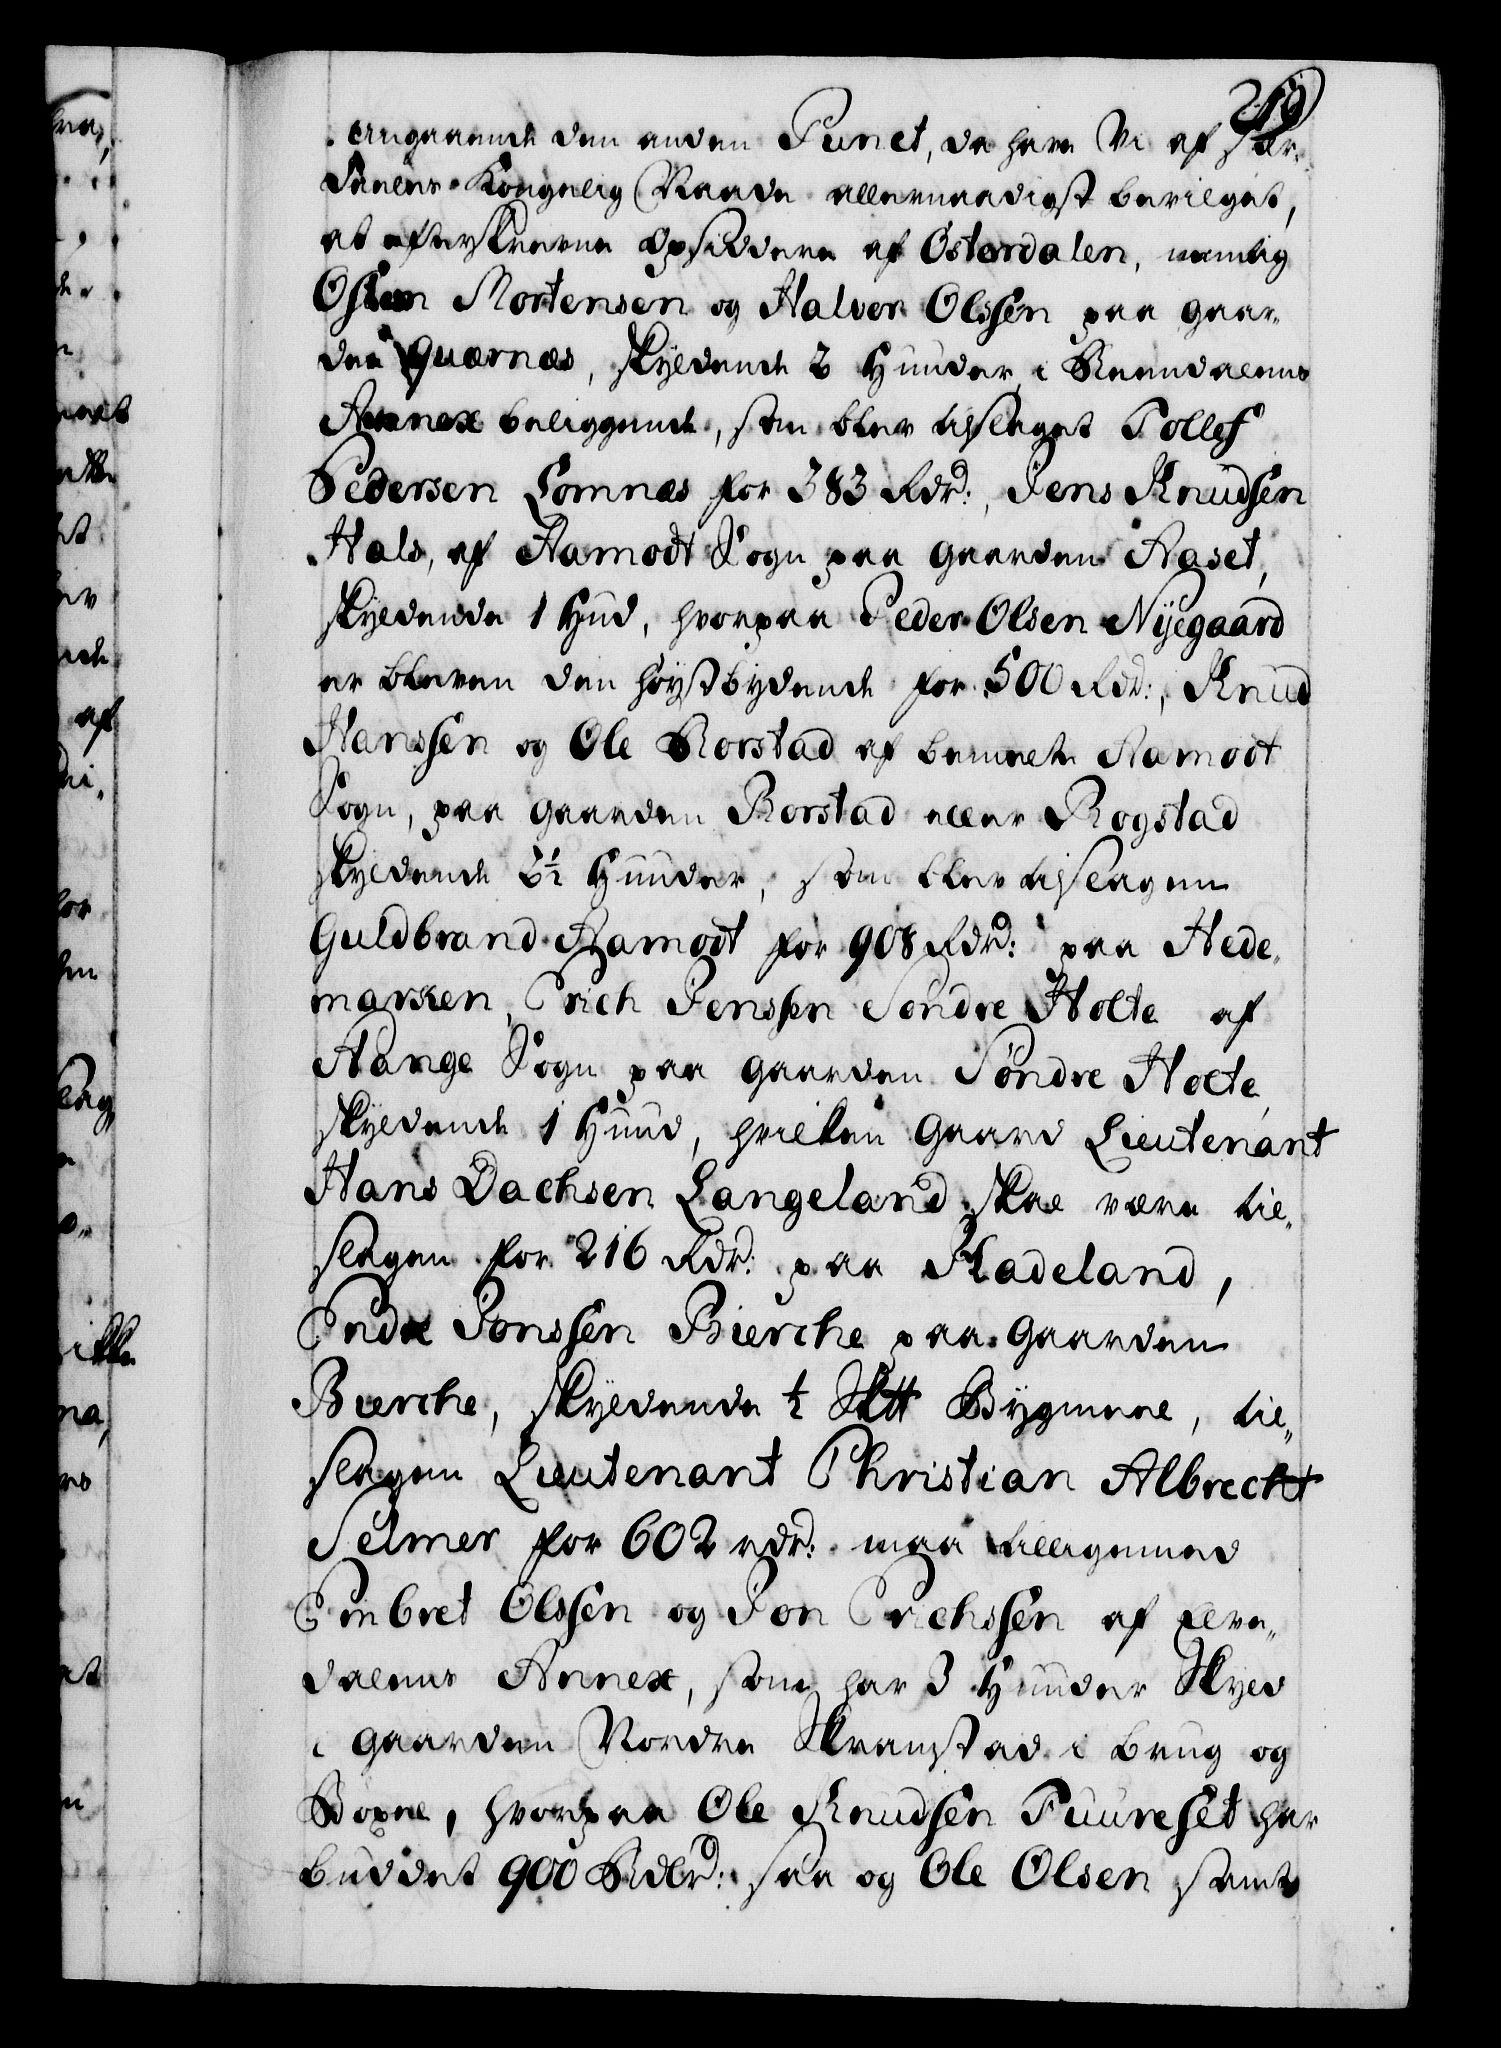 Angaaende den anden Punct, da have Vi af sær-
deeles Kongelig Naade allernaadigst bevilget,
at efterskrevne Opsiddere af Østerdalen, nemlig
Osten Mortensen og Halvor Olssen paa gaar-
den Quærnæs, skyldende 2 Huuder, i Reendalens
Annex beliggende, som blev tilslaget Tollef
Pedersen Lomnæs for 383 Rdr:, Jens Knudsen
Hals, af Aamodt Sogn paa gaarden Aaset,
skyldende 1 Hud, hvorpaa Peder Olsen Nÿegaard
er bleven den høystbydende for 500 Rdr:, Knud
Hanssen og Ole Rorstad af bemelte Aamodt
Sogn, paa gaarden Rorstad eller Rogstad
skyldende 2½ Huuder, som blev tilslagen
Guldbrand Aamodt for 908 Rdr: paa Hede-
marken, Erich Jenssen Søndre Holte af
Stange Sogn paa gaarden Søndre Holte,
skyldende 1 Huud, hvilken Gaard Lieutenant
Hans Dachsen Langeland skal være til-
slagen for 216 Rdr: paa Hadeland,
Endre Jonssen Bierche paa Gaarden
Bierche, skyldende ½ Sktt Bygmeel, til-
slagen Lieutenant Christian Albrecht
Selmer for 602 rdr: maa tilligemed
Embret Olssen og Jon Erichssen af Elve-
dalens Annex, som har 3 Huuder Skyld
i gaarden Nordre Skramstad i brug og
Bøxel, hvorpaa Ole Knudsen Fuureset har
buddet 900 Rdlr: saa og Ole Olsen samt